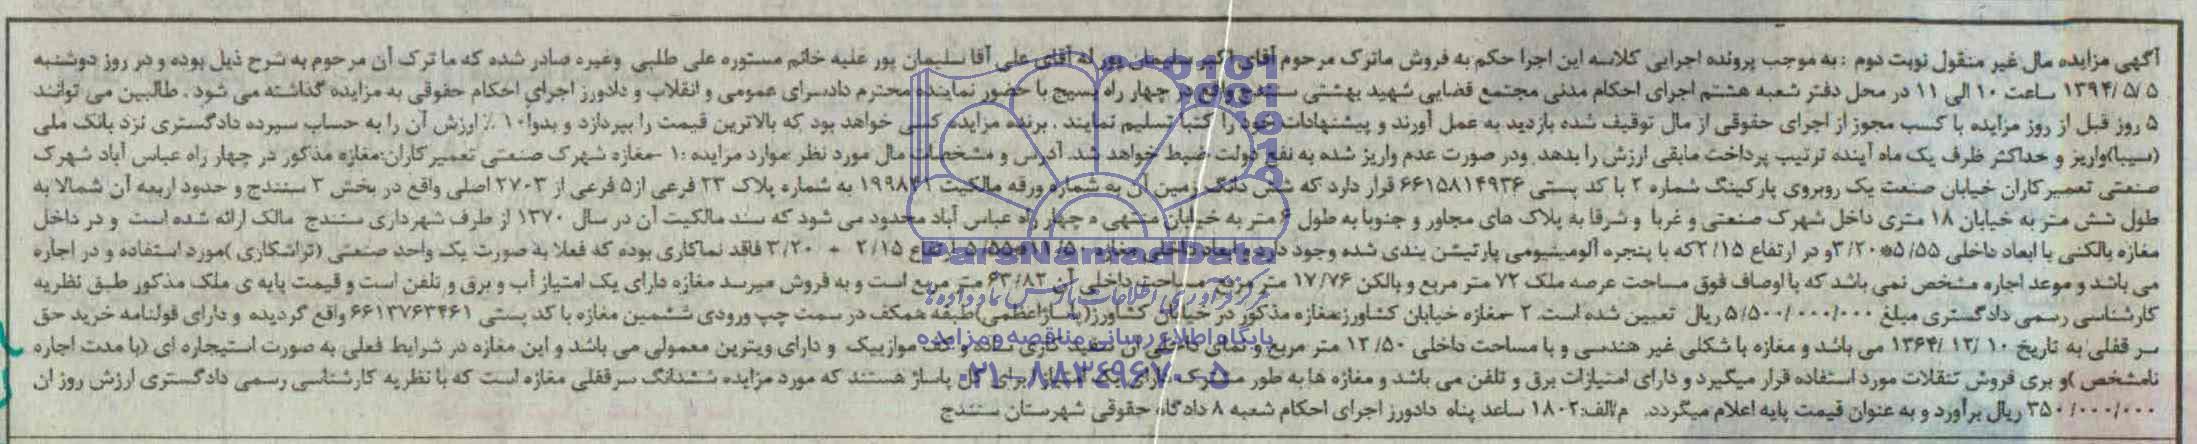 آگهی مزایده مال غیر منقول نوبت دوم : به موجب پرونده اجرایی کلاسه این اجرا حکم به فروش ماترک مرحوم آقای اکبر سلیمان پور له آقای علی آقا سلیمان پور علیه خانم مستوره علی طلبی وغیره صادر شده که ما ترک آن مرحوم به شرح ذیل بوده و در روز دوشنبه
۱۳۹۴/۵/۵ ساعت ۱۰ الی ۱۱ در محل دفتر شعبه هشتم اجرای احکام مدنی مجتمع قضایی شهید بهشتی سنندج واقع در چهار راه بسیج با حضور نماینده محترم دادسرای عمومی و انقلاب و دادورز اجرای احکام حقوقی به مزایده گذاشته می شود . طالبین می توانند
۵ روز قبل از روز مزایده با کسب مجوز از اجرای حقوقی از مال توقیف شده بازدید به عمل آورند و پیشنهادات خود را کتبا تسلیم نمایند . برنده مزایده کسی خواهد بود که بالاترین قیمت را بپردازد و بدوا ۱۰٪ ارزش آن را به حساب سپرده دادگستری نزد بانک ملی
(سیبا)واریز و حداکثر ظرف یک ماه آینده ترتیب پرداخت مابقی ارزش را بدهد ودر صورت عدم واریز شده به نفع دولت ضبط خواهد شد. آدرس و مشخصات مال مورد نظر :موارد مزایده :۱ -مغازه شهرک صنعتی تعمیر کاران:مغازه مذکور در چهار راه عباس آباد شهرک
صنعتی تعمیر کاران خیابان صنعت یک روبروی پارکینگ شماره ۲ با کد پستی ۶۶۱۵۸۱۴۹۳۶ قرار دارد که شش دانگ زمین آن به شماره ورقه مالکیت ۱۹۹۸۴۱ به شماره پلاک ۲۳ فرعی از ۵ فرعی از ۲۷۰۳ اصلی واقع در بخش ۳ سنندج و حدود اربعه آن شمالا به
طول شش متر به خیابان ۱۸ متری داخل شهرک صنعتی و غربا و شرقا به پلاک های مجاور و جنوبا به طول ۶ متر به خیابان منتهی ه چهار راه عباس آباد محدود می شود که سند مالکیت آن در سال ۱۳۷۰ از طرف شهرداری سنندج مالک ارائه شده است و در داخل
مغازه بالکنی با ابعاد داخلی ۵/۵۵*۳/۲۰و در ارتفاع ۲/۱۵که با پنجره آلومینیومی پارتیشن بندی شده وجود دارد و ابعاد داخلی مغازه ۱۱/۵۰*۵/۵۵ با ارتفاع ۲/۱۵ + ۳/۲۰ فاقد نماکاری بوده که فعلا به صورت یک واحد صنعتی (تراشکاری )مورد استفاده و در اجاره
می باشد و موعد اجاره مشخص نمی باشد که با اوصاف فوق مساحت عرصه ملک ۷۲ متر مربع و بالکن ۱۷/۷۶ متر مربع مساحت داخلی آن ۶۳/۸۲ متر مربع است و به فروش میرسد مغازه دارای یک امتیاز آب و برق و تلفن است و قیمت پایه ی ملک مذکور طبق نظریه
کارشناسی رسمی دادگستری مبلغ ۵/۵۰۰/۰۰۰/۰۰۰ ریال تعیین شده است. ۲ -مغازه خیابان کشاورز:مغازه مذکور در خیابان کشاورز(پاساژاعظمی)طبقه همکف در سمت چپ ورودی ششمین مغازه با کد پستی ۶۶۱۳۷۶۳۴۶۱ واقع گردیده و دارای قولنامه خرید حق
سر قفلی به تاریخ ۱۳۶۴/۱۲/۱۰ می باشد و مغازه با شکلی غیر هندسی و با مساحت داخلی ۱۲/۵۰ متر مربع و نمای داخلی آن سفید کاری ساده و کف موازییک و دارای ویترین معمولی می باشد و این مغازه در شرایط فعلی به صورت استیجاره ای (با مدت اجاره
نامشخص )و بری فروش تنقلات مورد استفاده قرار میگیرد و دارای امتیازات برق و تلفن می باشد و مغازه ها به طور مشترک دارای یک امتیاز برای کل پاساژ هستند که مورد مزایده ششدانگ سرقفلی مغازه است که با نظریه کارشناسی رسمی دادگستری ارزش روز ان
۳۵۰/۰۰۰/۰۰۰ ریال برآورد و به عنوان قیمت پایه اعلام میگردد. م/الف:۱۸۰۲ ساعد پناه دادورز اجرای احکام شعبه ۸ دادگاه حقوقی شهرستان سنندج
ParsNamadData
مرکز فرآوری اطلاعات پارس نماد داده ها
پایگاه اطلاع رسانی مناقصه و مزایده
۰۲۱-۸۸۳۴۹۶۷۰-۵